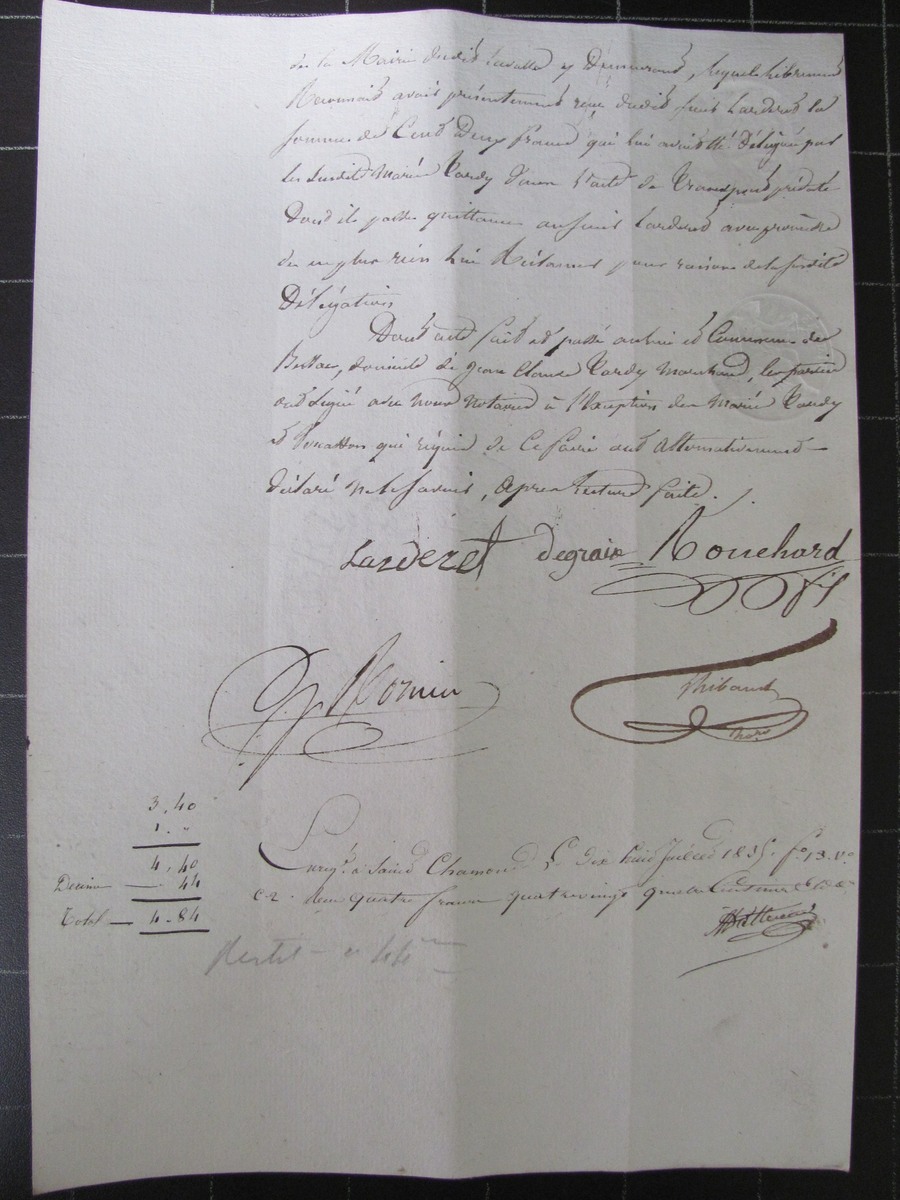 de la Mairie dudit Lavalla y Demeurant, lequel librement
Reconnait avoir présentement reçu dudit sieur Larderet la
somme de Cent Deux francs qui lui avait été Déléguée par
les susdits Mariés Tardy Dans l'acte de
Dont il passe quittance au sieur Larderet avec promesse
de ne plus rien lui Réclamer pour raison de la susdite
Délégation
Dont acte fait et passé en Commune de
Bessac, domicile de Jean Claude Tardy Marchand, les parties
ont signé avec nous Notaires à l'Exception des Mariés Tardy
et qui requis de Ce faire ont Alternativement
déclaré ne le savoir, après lecture faite.
Larderet degraix Rouchard
fils
Thibaud
Nore
3,40
1. "
4,40
Décime — 44
Total — 4.84
Enregt. à Saint Chamond le dix huit Juillet 1835. fo. 13. Vo
c. 2. Reçu quatre francs quatrevingt quatre Centimes
44